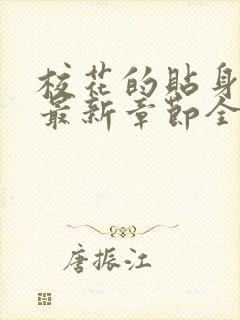 校花的贴身
最新章节全
唐振江